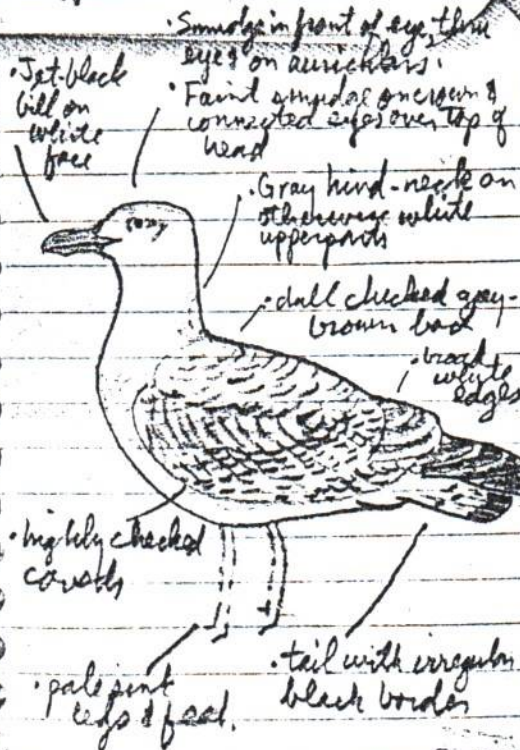 • Smudge in front of eye, thru
eye & on auriculars.
• Jet-black
bill on
white
face
• Faint smudge on crown &
connected eyes over top of
head
• Gray hind-neck on
otherwise white
upperparts
• dull checked gray-
brown back
• broad
white
edges
• highly checked
coverts
• pale pink
legs & feet.
• tail with irregular
black border